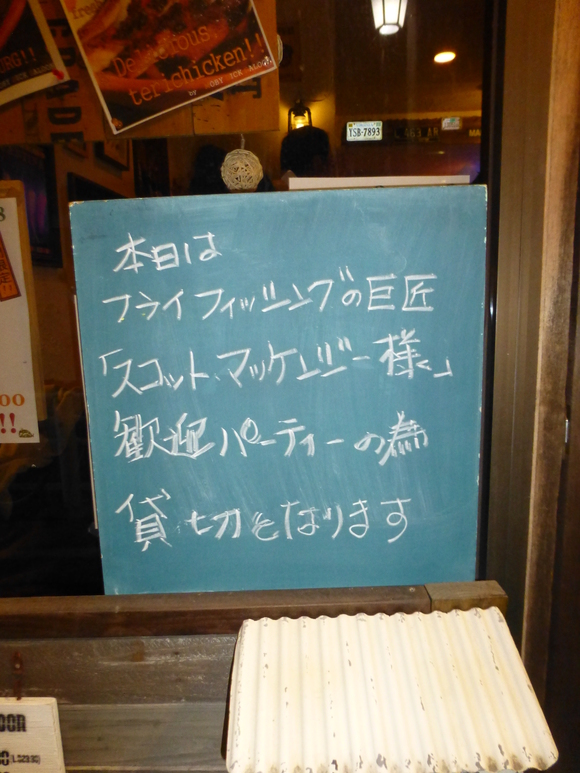 Delicious.
terichicken!!
YSB-7893
本日は
フライフィッシングの巨匠
「スコット、マッケンジー様」
歓迎パーティーの為
貸切となります
!!